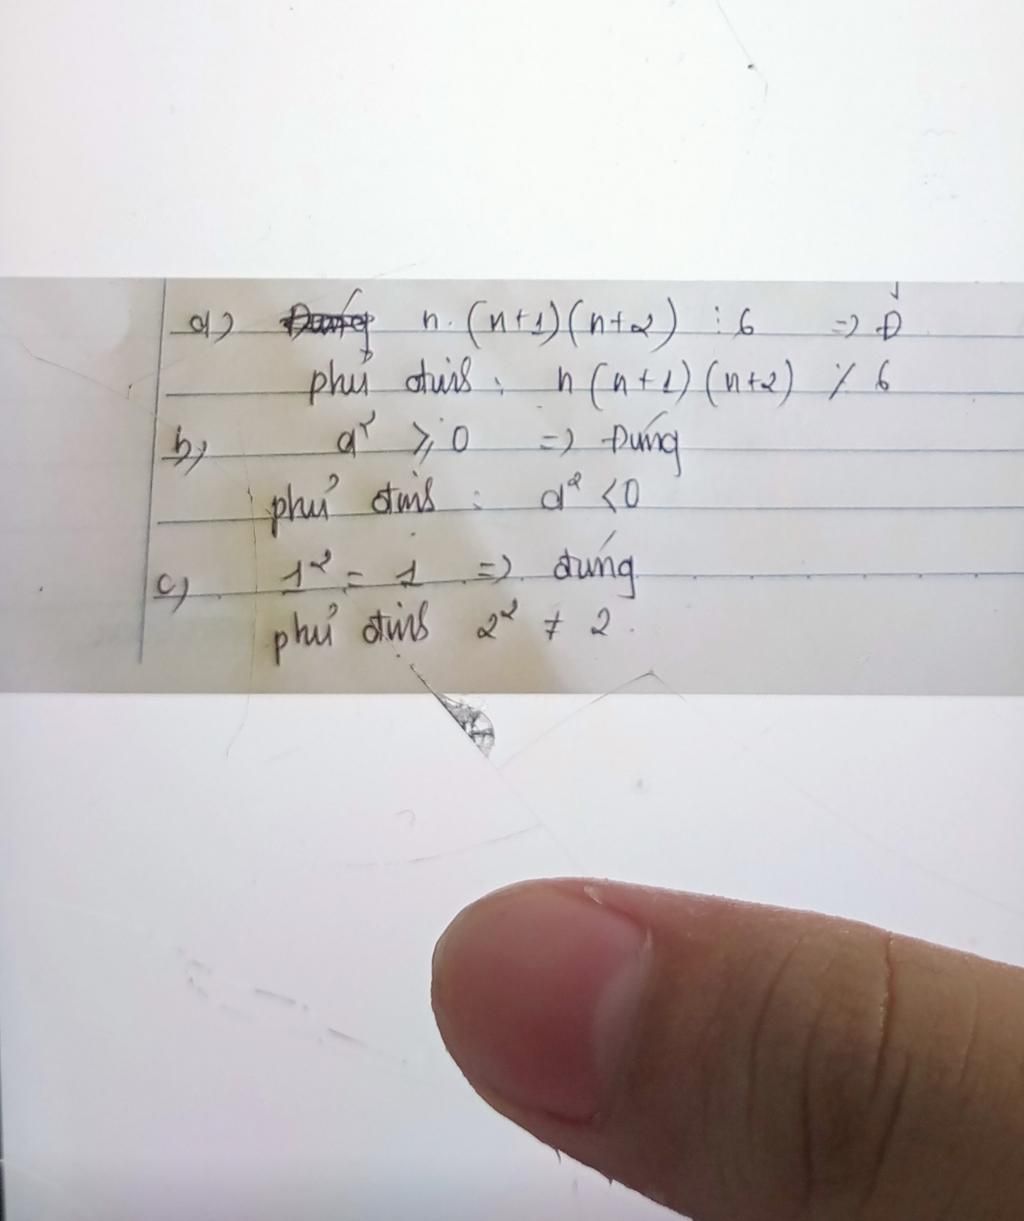 a) n. (n+1)(n+2) ⋮ 6 => Đ
phủ định : n (n+1) (n+2) ⋮̸ 6
b) a² ⩾ 0 => Đúng
phủ định : a² < 0
c) 1² = 1 => đúng
phủ định 2² ≠ 2.